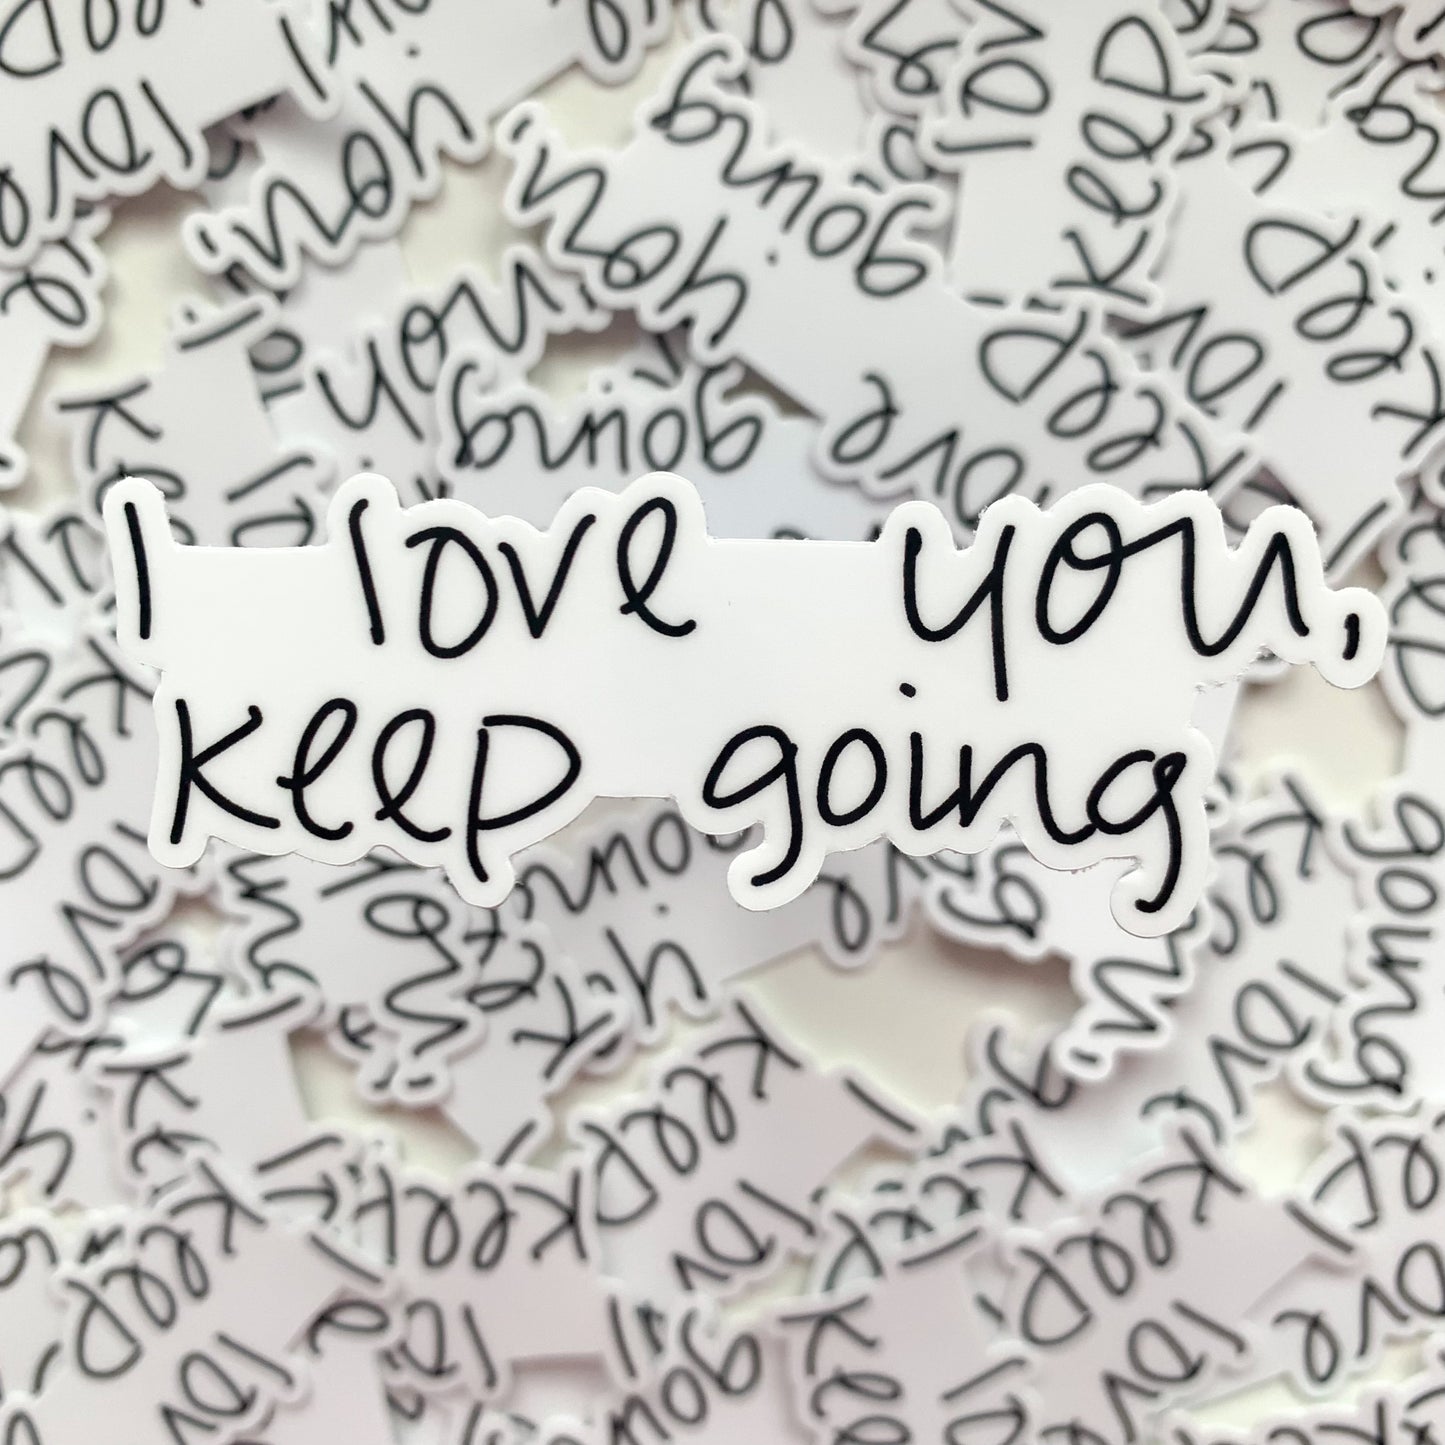 I love you,
keep going